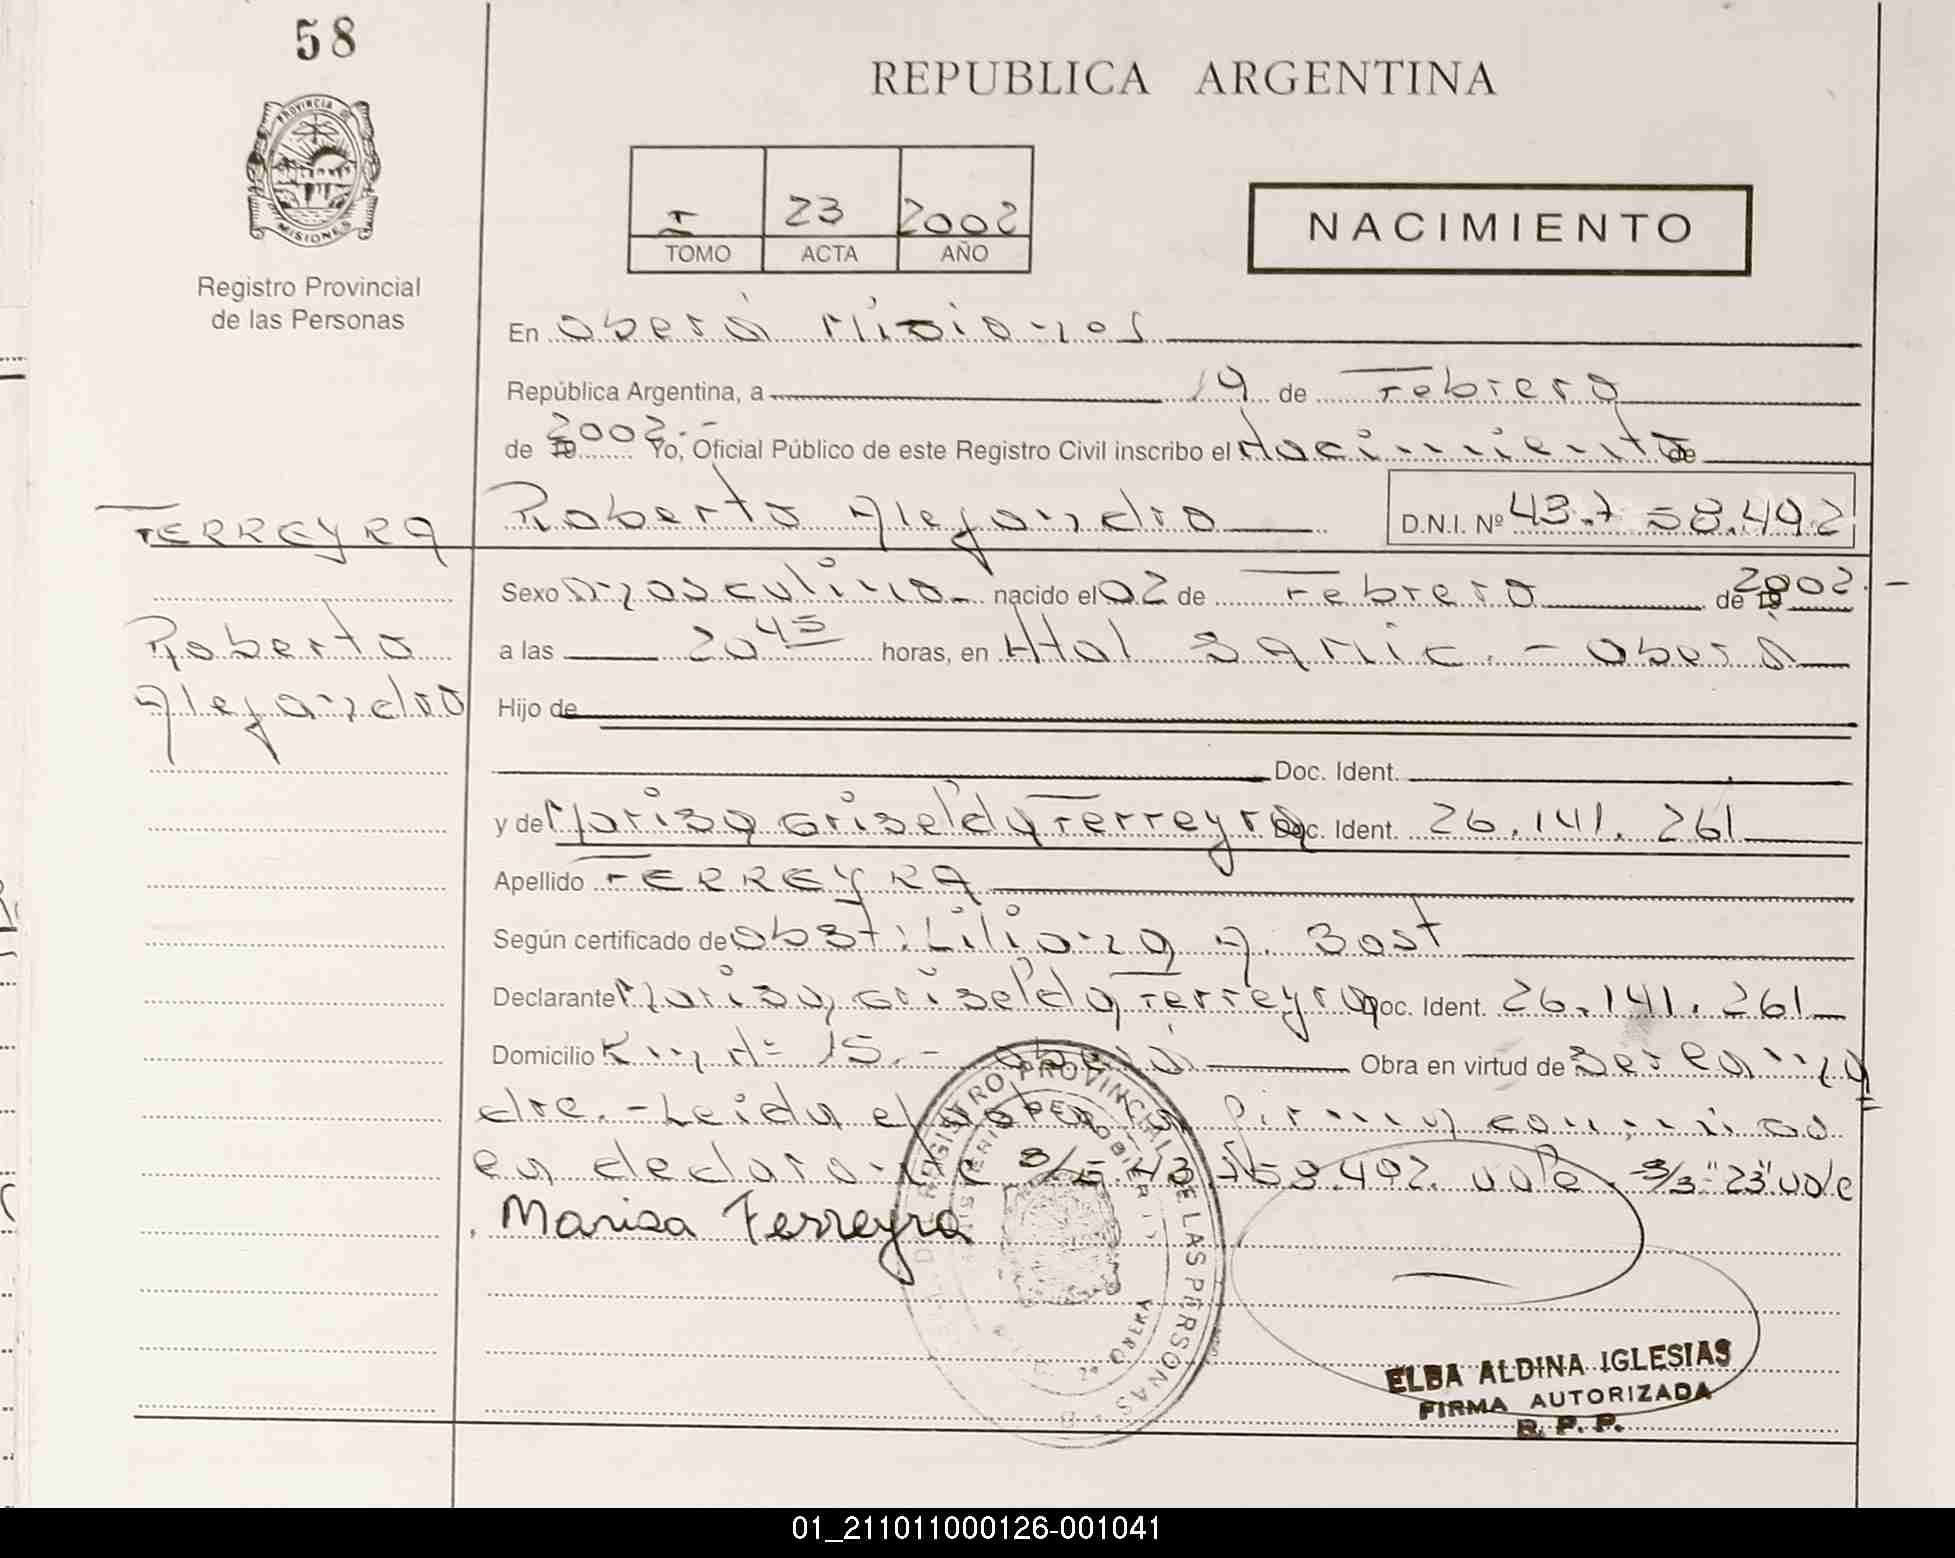 58
PROVINCIA DE
MISIONES
Registro Provincial
de las Personas
REPUBLICA ARGENTINA
I 23 2002
TOMO ACTA AÑO
NACIMIENTO
En Oberá Misiones
República Argentina, a 19 de Febrero
de 2002.- Yo, Oficial Público de este Registro Civil inscribo el Nacimiento de
FERREYRA
Roberto Alejandro D.N.I. Nº 43.758.492
Sexo masculino nacido el 02 de Febrero de 2002.-
Roberto
Alejandro
a las 20 45 horas, en Htal SAMIC.- Oberá
Hijo de
Doc. Ident.
y de Marisa Griselda Ferreyra Doc. Ident. 26.141.261
Apellido FERREYRA
Según certificado de obst: Liliana A. Bast
Declarante Marisa Griselda Ferreyra Doc. Ident. 26.141.261
Domicilio Km Nº 15.- Oberá Obra en virtud de Ser la ma
dre.- Leida el acta la firma conmigo
la declarante S/E 43.758.492. vale. S/B "23" vale
Marisa Ferreyra
REGISTRO PROVINCIAL DE LAS PERSONAS
MINISTERIO DE GOBIERNO
OBERA
ELBA ALDINA IGLESIAS
FIRMA AUTORIZADA
R. P. P.
01_211011000126-001041